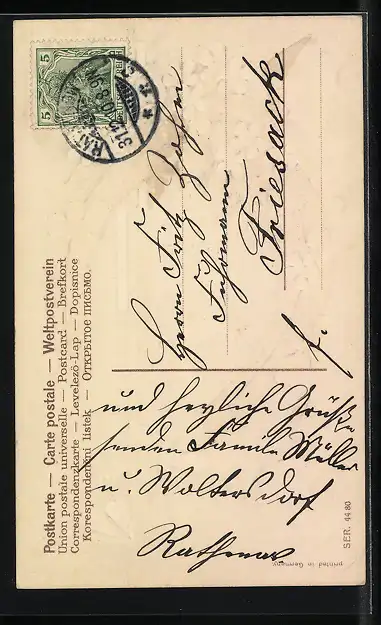 Postkarte — Carte postale — Weltpostverein
Union postale universelle — Postcard — Brefkort
Correspondenzkarte — Levelező-Lap — Dopisnice
Korespondenční listek — Открытое письмо.
5 5
31.12
8-9N
Herrn Fritz Zahn
Fuhrmann
Friesack
f.
und herzliche Grüße
senden Familie Müller
u. Woltersdorf
Rathenow
SER. 4480
printed in Germany